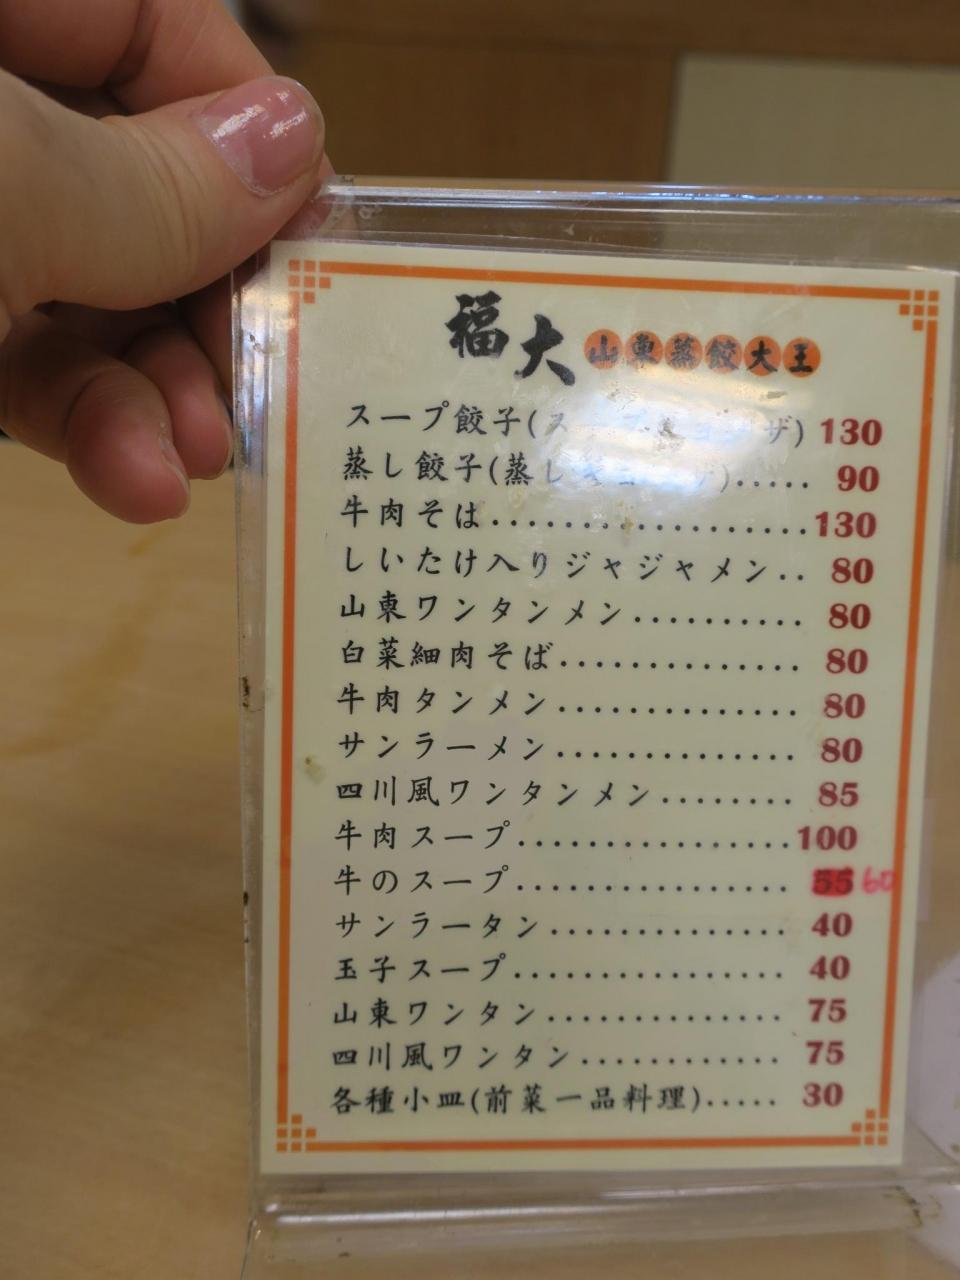 福大 山東蒸餃大王
スープ餃子(ス ザ) 130
蒸し餃子(蒸し ギョーザ)..... 90
牛肉そは..................130
しいたけ入りジャジャメン.. 80
山東ワンタンメン.......... 80
白菜細肉そば.............. 80
牛肉タンメン.............. 80
サンラーメン.............. 80
四川風ワンタンメン........ 85
牛肉スープ................100
牛のスープ................ 55 60
サンラータン.............. 40
玉子スープ................ 40
山東ワンタン.............. 75
四川風ワンタン............ 75
各種小皿(前菜一品料理)..... 30